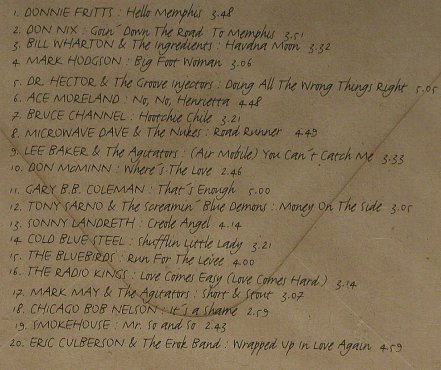 1. DONNIE FRITTS : Hello Memphis 3.48
2. DON NIX : Goin' Down The Road To Memphis 3.51
3. BILL WHARTON & The Ingredients : Havana Moon 3.32
4. MARK HODGSON : Big Foot Woman 3.06
5. DR. HECTOR & The Groove Injectors : Doing All The Wrong Things Right 5.05
6. ACE MORELAND : No, No, Henrietta 4.48
7. BRUCE CHANNEL : Hootchie Chile 3.21
8. MICROWAVE DAVE & The Nukes : Road Runner 4.49
9. LEE BAKER & The Agitators : (Air Mobile) You Can't Catch Me 3.33
10. DON McMINN : Where's The Love 2.46
11. GARY B.B. COLEMAN : That's Enough 5.00
12. TONY SARNO & The Screamin' Blue Demons : Money On The Side 3.05
13. SONNY LANDRETH : Creole Angel 4.14
14. COLD BLUE STEEL : Shufflin Little Lady 3.21
15. THE BLUEBIRDS : Run For The Leiee 4.00
16. THE RADIO KINGS : Love Comes Easy (Love Comes Hard) 3.14
17. MARK MAY & The Agitators : Short & Stout 3.07
18. CHICAGO BOB NELSON : It's a Shame 2.59
19. SMOKEHOUSE : Mr. So and So 2.43
20. ERIC CULBERSON & The Erok Band : Wrapped Up In Love Again 4.59